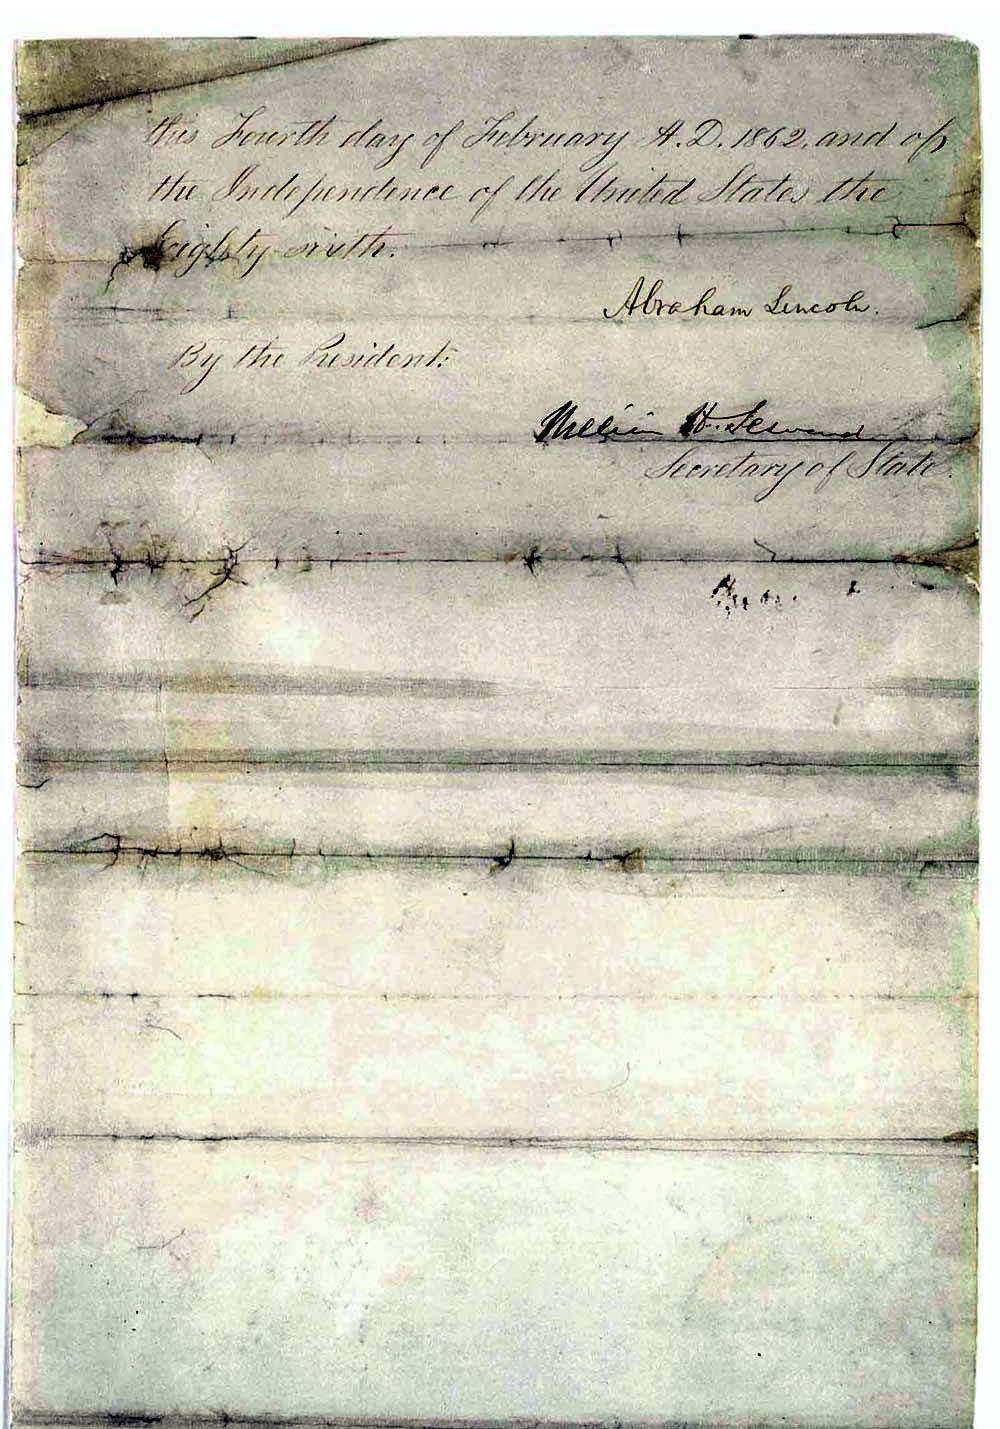 this Fourth day of February A.D. 1862, and of
the Independence of the United States the
Eighty-sixth.
Abraham Lincoln.
By the President:
William H. Seward
Secretary of State.